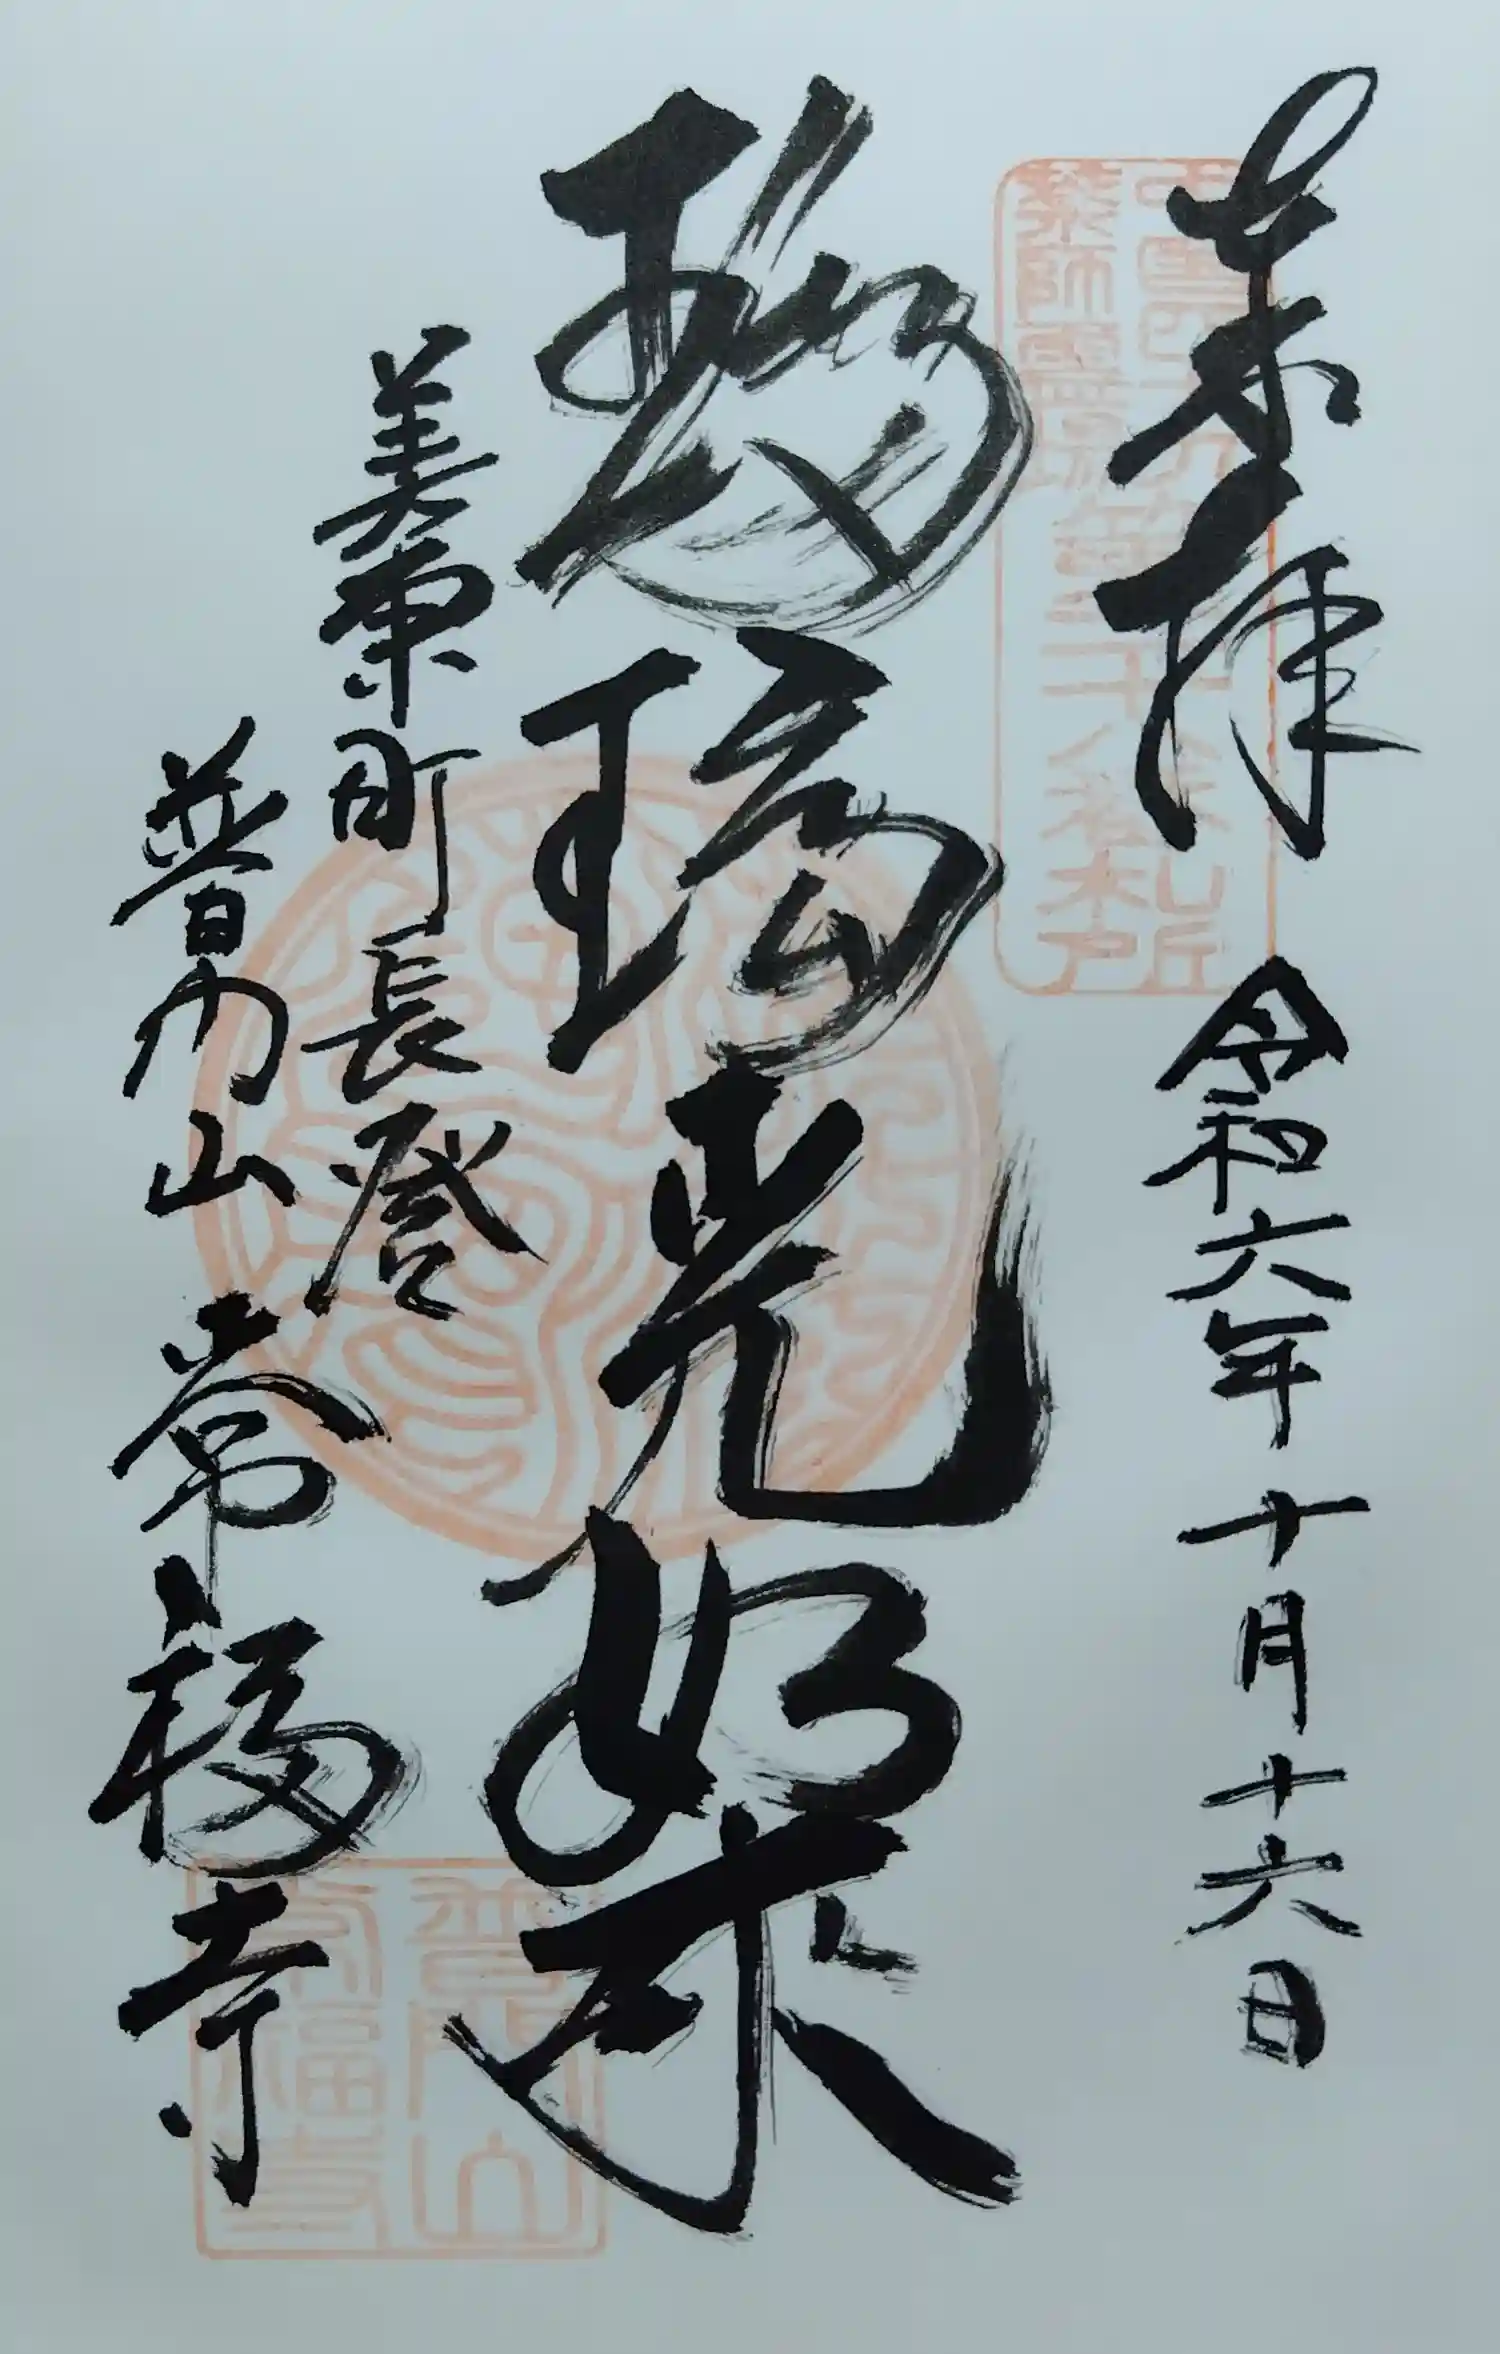 奉拝 令和六年十月十六日
瑠璃光如来
美東町長登
普門山 常福寺
中国四十九
薬師霊場
第二十八番札所
普門山
常福寺